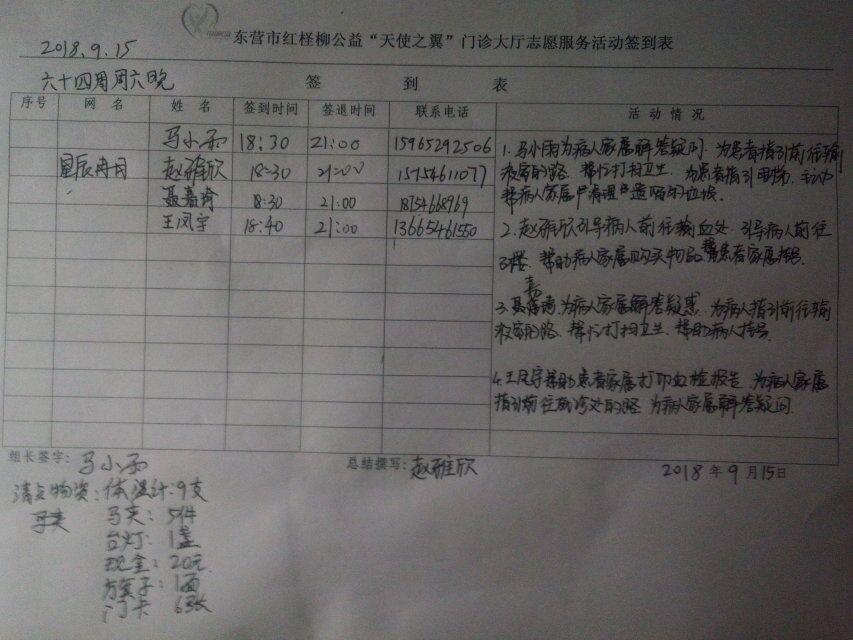 东营市红柽柳公益“天使之翼”门诊大厅志愿服务活动签到表
2018.9.15
六十四周周六晚 签到表
序号 网名 姓名 签到时间 签退时间 联系电话 活动情况
马小雨 18:30 21:00 15965292506
星辰冉冉 赵雅欣 18:30 21:00 15154611077
聂嘉琦 18:30 21:00 18754668969
王凤宇 18:40 21:00 13665461550
1.马小雨为病人家属解答疑问.为患者指引前往输
液室的路.帮忙打扫卫生.为患者指引电梯.主动
帮病人家属清理遗嘱
2.赵雅欣引导病人前往输血处.引导病人前往
3楼.帮助病人家属购买物品.帮患者家属挂号.
3.聂嘉琦.为病人家属解答疑惑.为病人指引前往输
液室的路.帮忙打扫卫生.帮助病人挂号.
4.王凤宇帮助患者家属打印血检报告.为病人家属
指引前往确诊处的路.为病人家属解答疑问.
组长签字:马小雨 总结撰写:赵雅欣 2018年9月15日
清点物资:体温计:9支
马夹 马夹:5件
台灯:1盏
现金:20元.
方旗子:1面
门卡 6张